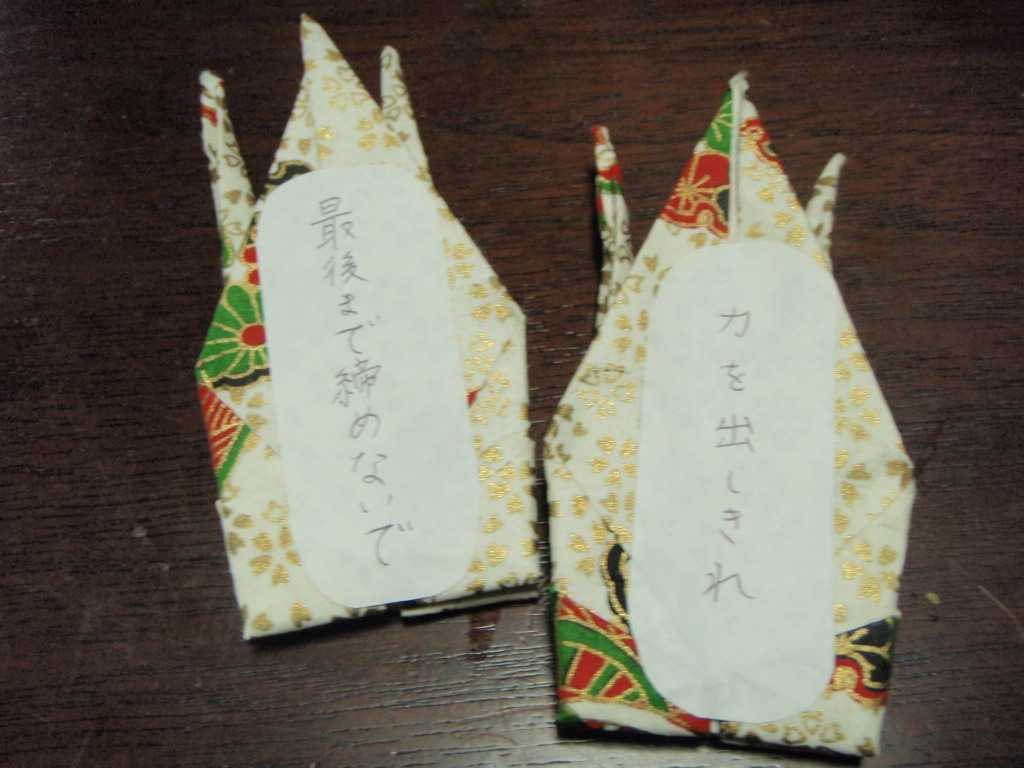 最後まで締めないで
力を出しきれ